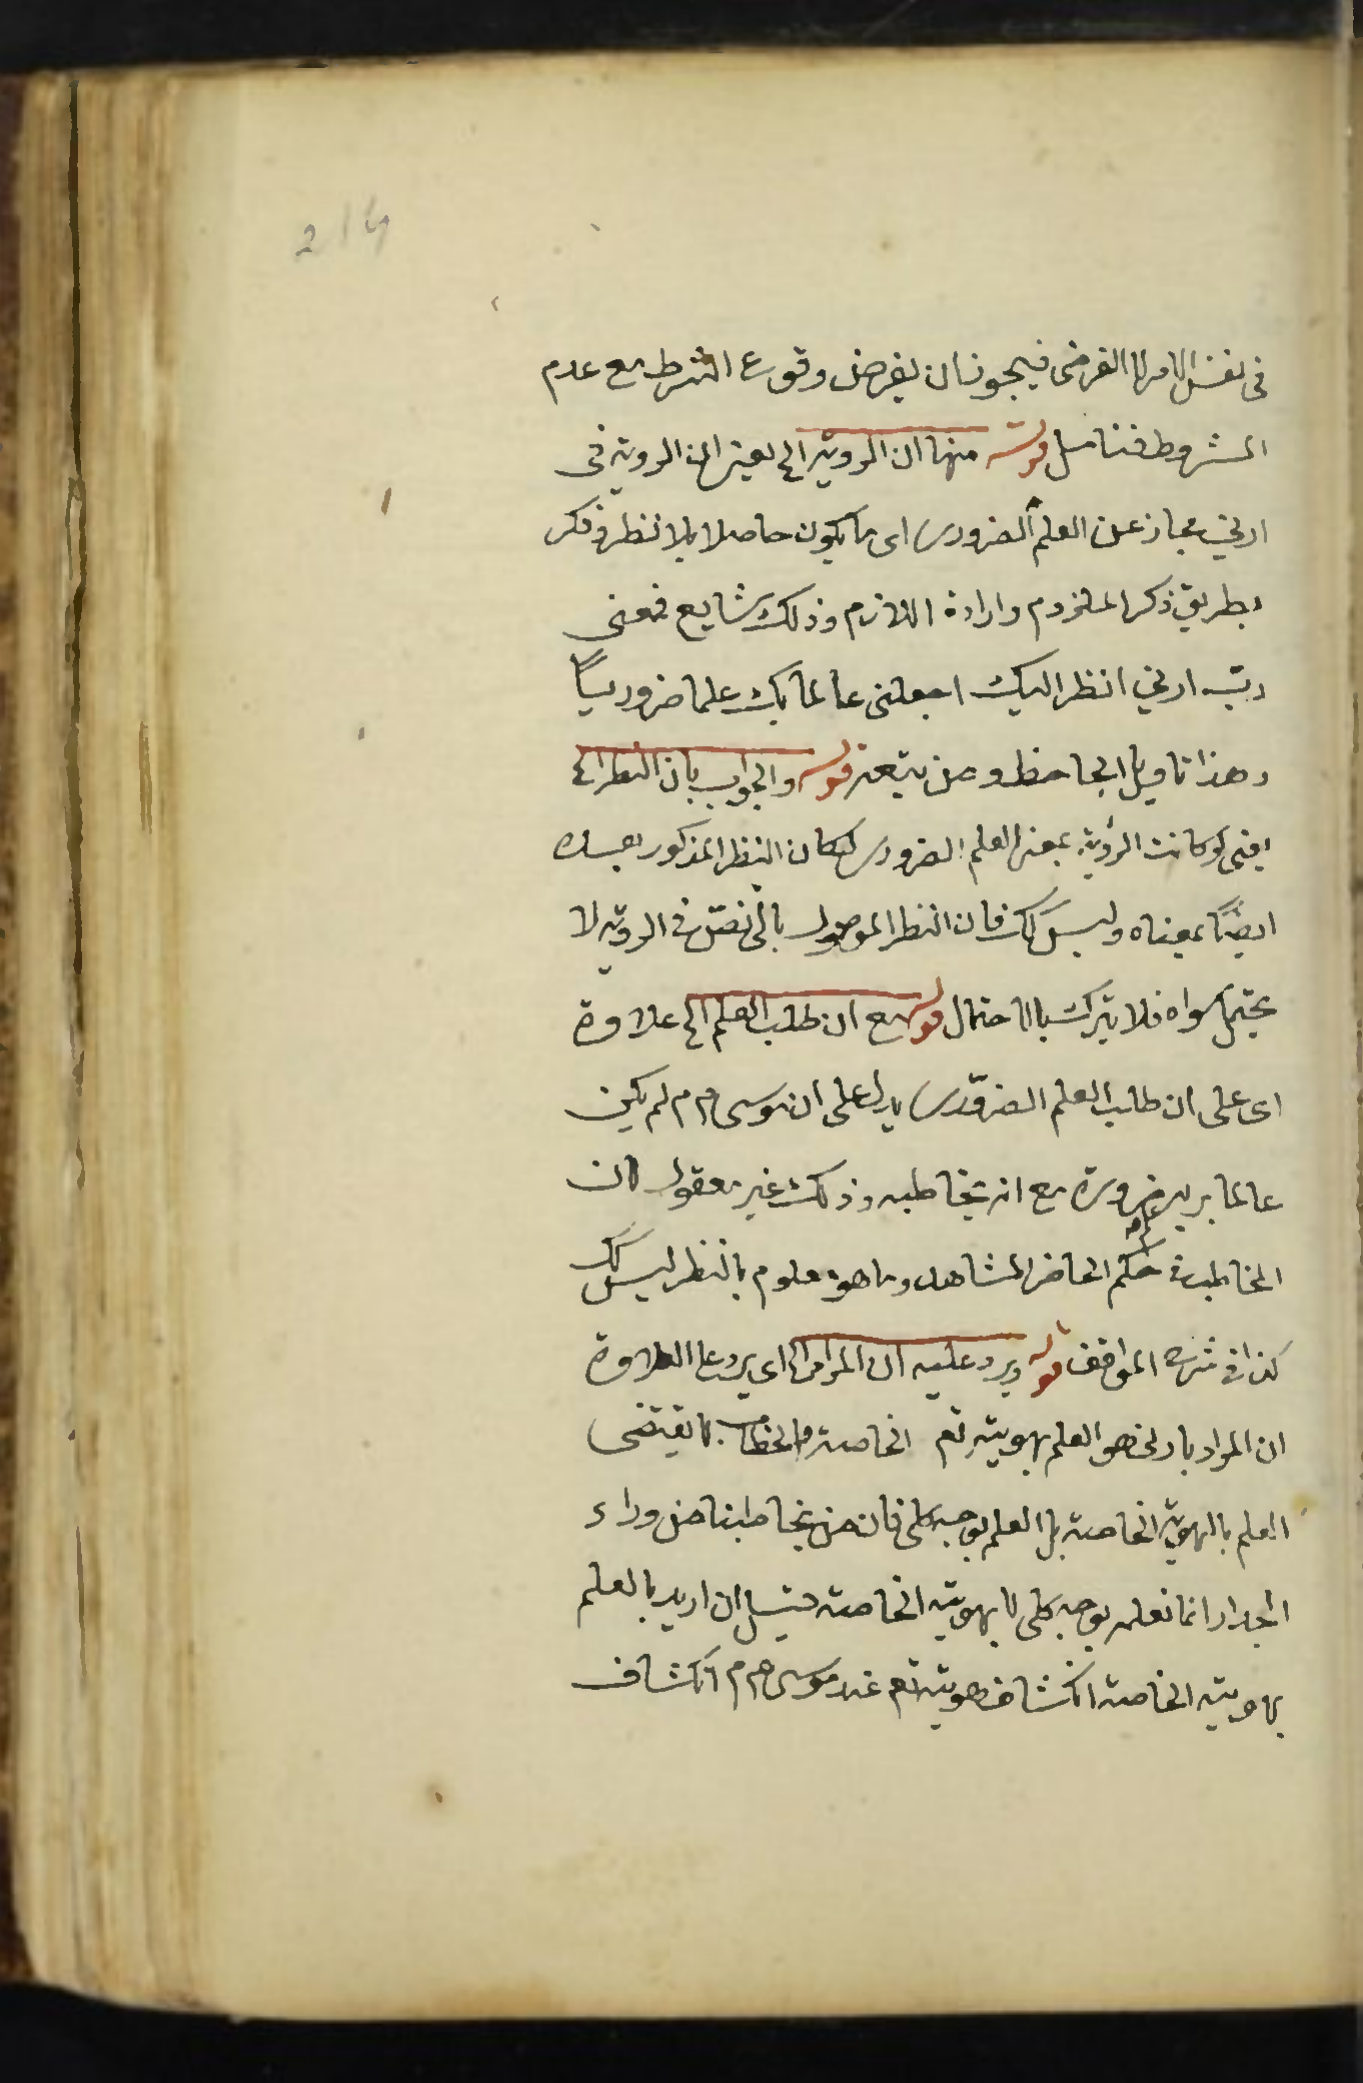 214
فى نفس الامر لا الفرضى فيجوز ان يفرض وقوع الشرط مع عدم
المشروط فتامل قوله منها ان الروية الخ يعنى ان الروية فى
ارنى مجاز عن العلم الضرورى اى ما يكون حاصلا بلا نظر وفكر
بطريق ذكر الملزوم وارادة اللازم وذلك شايع فمعنى
رب ارنى انظر اليك اجعلنى عالما بك علما ضروريا
وهذا تاويل الجاحظ ومن تبعه قوله والجواب بان النظر الخ
يعنى لو كانت الرؤية بمعنى العلم الضرورى لكان النظر المذكور بعده
ايضًا بمعناه وليس كك فان النظر الموصول بالى نص فى الروية لا
يحتمل سواه فلا يترك بالاحتمال قوله مع ان طلب العلم الخ علاوة
اى على ان طلب العلم الضرورى يدل على ان موسى عم م لم يكن
عالما بربه ضرورة مع انه يخاطبه وذلك غير معقول لان
المخاطب فى حكم الحاضر المشاهد وما هو معلوم بالنظر ليس كك
كذا فى شرح المواقف قوله ويرد عليه ان المراد الخ اى يرد على العلاوة
ان المراد بارنى هو العلم بهويته تع الخاصة والخطاب لا يقتضى
العلم بالهوية الخاصة بل العلم بوجه كلى فان من يخاطبنا من وراء
الجدار انما نعلمه بوجه كلى لا بهويته الخاصة قيل ان اريد بالعلم
بهويته الخاصة انكشاف هويته تع عند موسى عم م انكشاف